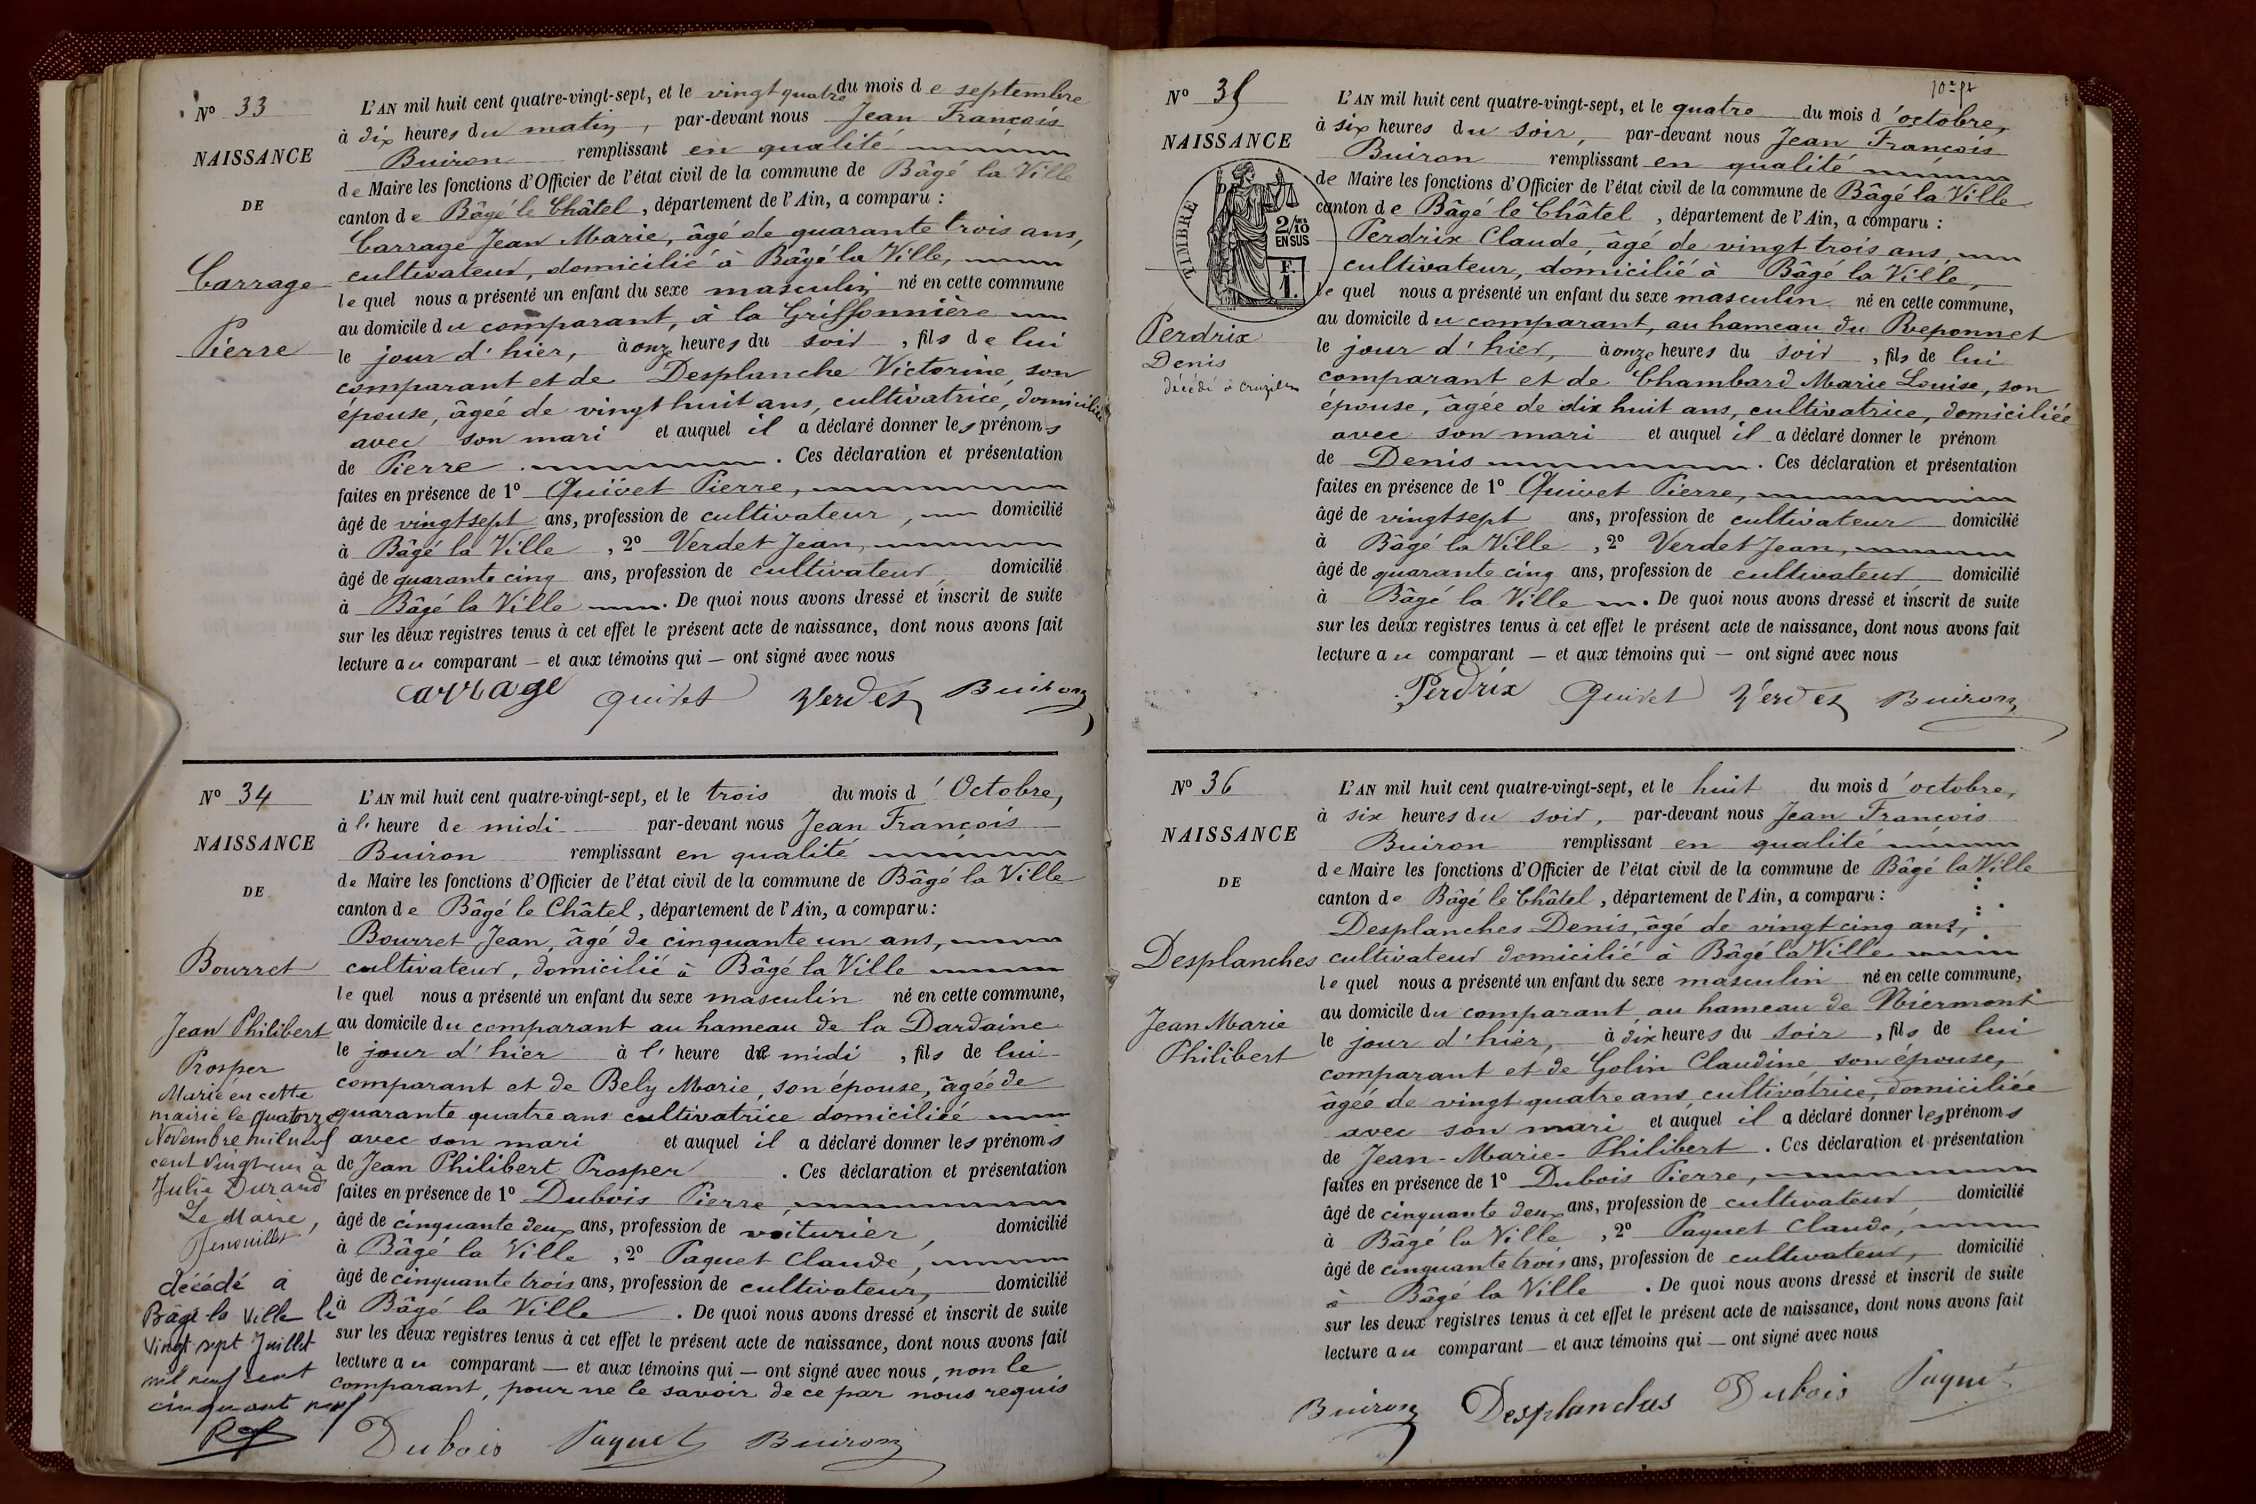 Nº 33
NAISSANCE
DE
Carrage
Pierre
L'AN mil huit cent quatre-vingt-sept, et le vingt quatre du mois de septembre
à dix heures du matin, par-devant nous Jean François
Buiron remplissant en qualité
de Maire les fonctions d'Officier de l'état civil de la commune de Bâgé la Ville
canton de Bâgé le Châtel, département de l'Ain, a comparu :
Carrage Jean Marie, âgé de quarante trois ans,
cultivateur, domicilié à Bâgé la Ville,
lequel nous a présenté un enfant du sexe masculin né en cette commune
au domicile du comparant, à la Griffonnière
le jour d'hier, à onze heures du soir, fils de lui
comparant et de Desplanche Victorine, son
épouse, âgée de vingt huit ans, cultivatrice, domiciliée
avec son mari et auquel il a déclaré donner les prénoms
de Pierre. Ces déclaration et présentation
faites en présence de 1º Quivet Pierre,
âgé de vingt sept ans, profession de cultivateur, domicilié
à Bâgé la Ville, 2º Verdet Jean,
âgé de quarante cinq ans, profession de cultivateur domicilié
à Bâgé la Ville. De quoi nous avons dressé et inscrit de suite
sur les deux registres tenus à cet effet le présent acte de naissance, dont nous avons fait
lecture au comparant — et aux témoins qui — ont signé avec nous
Carrage Quivet Verdet Buiron
Nº 34
NAISSANCE
DE
Bourret
Jean Philibert
Prosper
Marié en cette
mairie le quatorze
Novembre mil neuf
cent vingt un à
Julie Durand
Le Maire,
décédé à
Bâgé la Ville le
vingt sept Juillet
mil neuf cent
cinquante neuf
L'AN mil huit cent quatre-vingt-sept, et le trois du mois d'Octobre,
à l'heure de midi par-devant nous Jean François
Buiron remplissant en qualité
de Maire les fonctions d'Officier de l'état civil de la commune de Bâgé la Ville
canton de Bâgé le Châtel, département de l'Ain, a comparu :
Bourret Jean, âgé de cinquante un ans,
cultivateur, domicilié à Bâgé la Ville
lequel nous a présenté un enfant du sexe masculin né en cette commune,
au domicile du comparant au hameau de la Dardaine
le jour d'hier à l'heure de midi, fils de lui
comparant et de Bely Marie, son épouse, âgée de
quarante quatre ans cultivatrice domiciliée
avec son mari et auquel il a déclaré donner les prénoms
de Jean Philibert Prosper. Ces déclaration et présentation
faites en présence de 1º Dubois Pierre,
âgé de cinquante deux ans, profession de voiturier, domicilié
à Bâgé la Ville, 2º Paquet Claude,
âgé de cinquante trois ans, profession de cultivateur, domicilié
à Bâgé la Ville. De quoi nous avons dressé et inscrit de suite
sur les deux registres tenus à cet effet le présent acte de naissance, dont nous avons fait
lecture au comparant — et aux témoins qui — ont signé avec nous, non le
comparant, pour ne le savoir de ce par nous requis
Dubois Paquet Buiron
Nº 35
NAISSANCE
TIMBRE
2/10
EN SUS
F.
1.
Perdrix
Denis
décédé à
L'AN mil huit cent quatre-vingt-sept, et le quatre du mois d'octobre,
à six heures du soir, par-devant nous Jean François
Buiron remplissant en qualité
de Maire les fonctions d'Officier de l'état civil de la commune de Bâgé la Ville
canton de Bâgé le Châtel, département de l'Ain, a comparu :
Perdrix Claude, âgé de vingt trois ans,
cultivateur, domicilié à Bâgé la Ville,
lequel nous a présenté un enfant du sexe masculin né en cette commune,
au domicile du comparant, au hameau du Reponnet
le jour d'hier, à onze heures du soir, fils de lui
comparant et de Chambard Marie Louise, son
épouse, âgée de dix huit ans, cultivatrice, domiciliée
avec son mari et auquel il a déclaré donner le prénom
de Denis. Ces déclaration et présentation
faites en présence de 1º Quivet Pierre,
âgé de vingt sept ans, profession de cultivateur domicilié
à Bâgé la Ville, 2º Verdet Jean,
âgé de quarante cinq ans, profession de cultivateur domicilié
à Bâgé la Ville. De quoi nous avons dressé et inscrit de suite
sur les deux registres tenus à cet effet le présent acte de naissance, dont nous avons fait
lecture au comparant — et aux témoins qui — ont signé avec nous
Perdrix Quivet Verdet Buiron
Nº 36
NAISSANCE
DE
Desplanches
Jean Marie
Philibert
L'AN mil huit cent quatre-vingt-sept, et le huit du mois d'octobre,
à six heures du soir, par-devant nous Jean François
Buiron remplissant en qualité
de Maire les fonctions d'Officier de l'état civil de la commune de Bâgé la Ville
canton de Bâgé le Châtel, département de l'Ain, a comparu :
Desplanches Denis, âgé de vingt cinq ans,
cultivateur domicilié à Bâgé la Ville
lequel nous a présenté un enfant du sexe masculin né en cette commune,
au domicile du comparant au hameau de Niermont
le jour d'hier, à dix heures du soir, fils de lui
comparant et de Golin Claudine son épouse,
âgée de vingt quatre ans, cultivatrice, domiciliée
avec son mari et auquel il a déclaré donner les prénoms
de Jean-Marie-Philibert. Ces déclaration et présentation
faites en présence de 1º Dubois Pierre,
âgé de cinquante deux ans, profession de cultivateur domicilié
à Bâgé la Ville, 2º Paquet Claude,
âgé de cinquante trois ans, profession de cultivateur, domicilié
à Bâgé la Ville. De quoi nous avons dressé et inscrit de suite
sur les deux registres tenus à cet effet le présent acte de naissance, dont nous avons fait
lecture au comparant — et aux témoins qui — ont signé avec nous
Buiron Desplanches Dubois Paquet